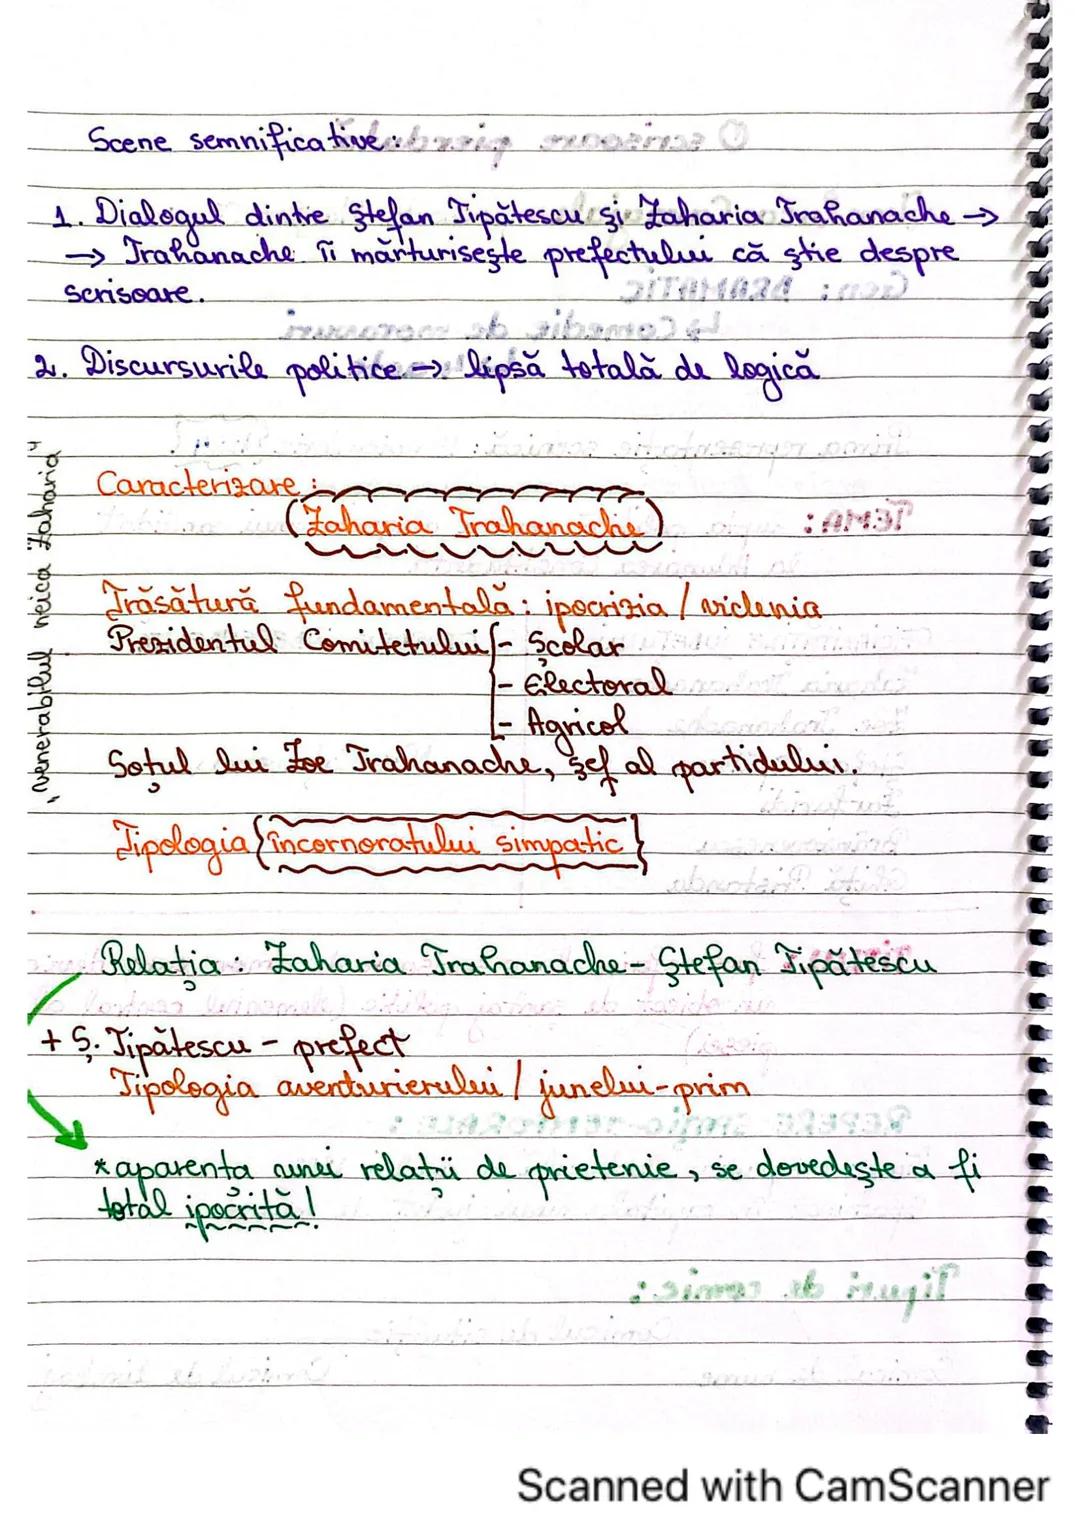 Scene semnificative:
1. Dialogul dintre Ștefan Tipătescu și Zaharia Trahanache →
→ Trahanache îi mărturisește prefectului că știe despre
scrisoare.
2. Discursurile politice → lipsă totală de logică
„venerabilul neica Zaharia”
Caracterizare:
Zaharia Trahanache
Trăsătură fundamentală: ipocrizia / viclenia
Prezidentul Comitetului - Școlar
- Electoral
- Agricol
Soțul lui Zoe Trahanache, șef al partidului.
Tipologia încornoratului simpatic
Relația: Zaharia Trahanache - Ștefan Tipătescu
+ Ș. Tipătescu - prefect
Tipologia aventurierului / junelui-prim
* aparența unei relații de prietenie, se dovedește a fi
total ipocrită!
Scanned with CamScanner